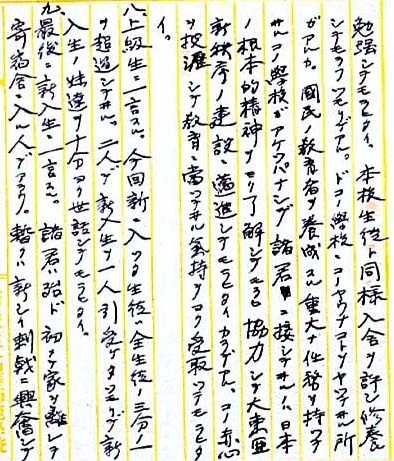 勉強シテモラヒタイ、本校生徒ト同様入舎ヲ許シ修養
シテモラフツモリデアル。ドコノ學校ニコーヤウナコトヲヤツテヰル所
ガアルカ。國民ノ教育者ヲ養成スル重大ナ任務ヲ持ツテ
ヰルコノ學校ガアケツパナシデ諸君ニ接シテヰルノハ日本
ノ根本的精神ヲヨリ了解シテモラヒ協力シテ大東亜
新秩序ノ建設ニ邁進シテモラヒタイカラデアル。コノ赤心
ヲ披瀝シテ教育ニ當ツテヰル気持ヲヨク受取ツテモラヒタ
イ。
八、上級生ニ一言スル。今回新ニ入ツタ生徒ハ全生徒ノ三分ノ一
ヲ超過シテヰル。二人デ新入生ヲ一人引受ケタツモリデ新
入生ノ妹達ヲ十分ヨク世話シテモラヒタイ。
九、最後ニ新入生ニ一言スル。諸君ハ殆ド初メテ家ヲ離レテ
寄宿舎ニ入ル人デアラウ。暫クハ新シイ刺戟ニ興奮シテ